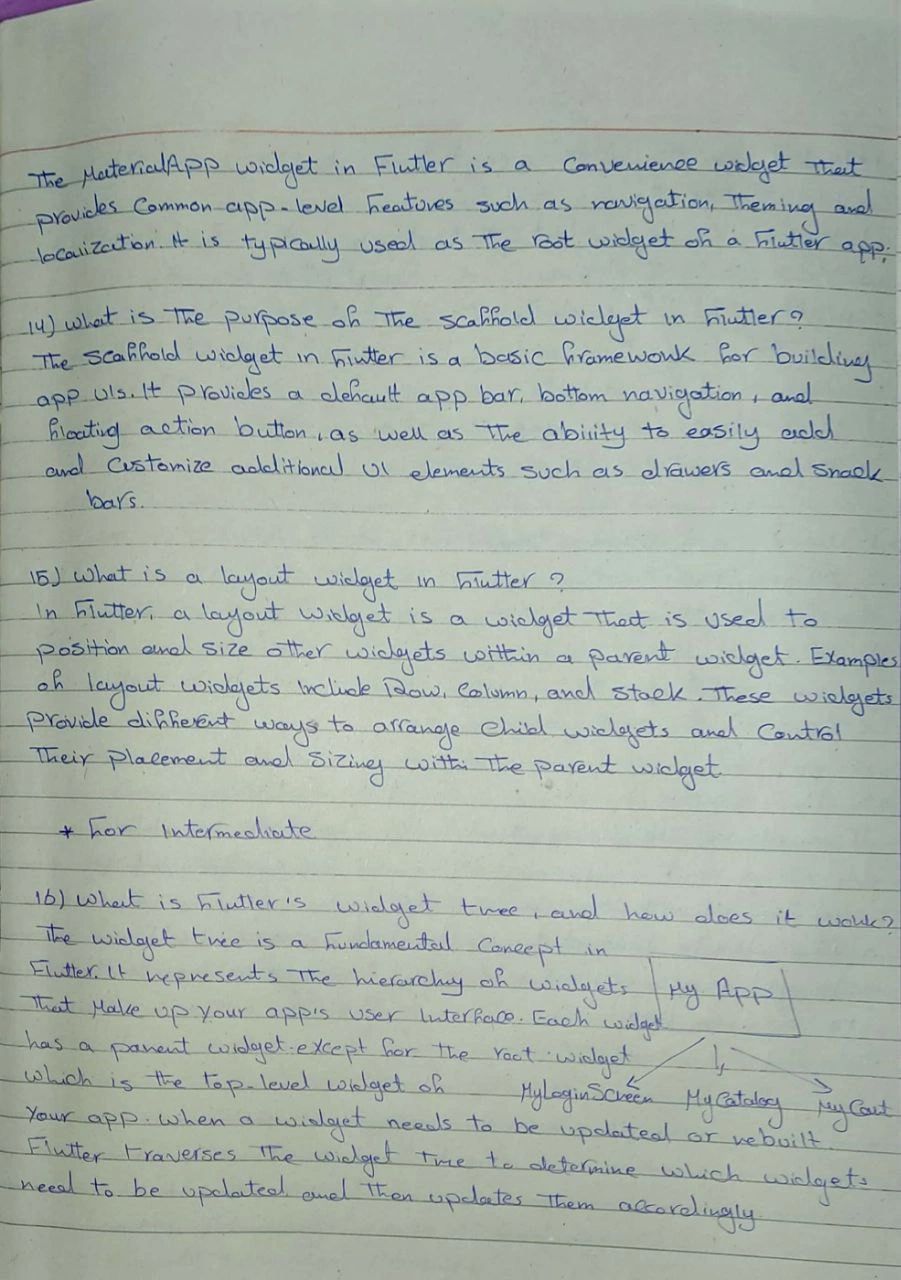 The MaterialApp widget in Flutter is a Convenience widget that
provides Common app-level features such as navigation, Theming and
localization. It is typically used as The root widget of a Flutter app.
14) What is The purpose of The scaffold widget in Flutter?
The scaffold widget in Flutter is a basic framework for building
app UIs. It provides a default app bar, bottom navigation, and
floating action button, as well as The ability to easily add
and Customize additional UI elements such as drawers and snack
bars.
15) What is a layout widget in Flutter?
In Flutter, a layout widget is a widget That is used to
position and size other widgets within a parent widget. Examples
of layout widgets Include Row, Column, and Stack. These widgets
provide different ways to arrange Child widgets and Control
Their placement and sizing withi The parent widget.
* For Intermediate
16) What is Flutter's widget tree, and how does it work?
The widget tree is a Fundamental Concept in
Flutter. It represents The hierarchy of widgets
That Make up your app's user Interface. Each widget
has a parent widget. except for the root widget
which is the top-level widget of
your app. When a widget needs to be updated or rebuilt
Flutter traverses The widget tree to determine which widgets
need to be updated and Then updates Them accordingly.
My App
MyLoginScreen MyCatalog MyCart